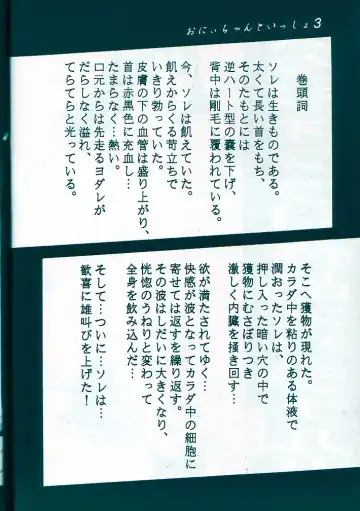 おにぃちゃんといっしょ3
巻頭詞
ソレは生きものである。
太くて長い首をもち、
そのたもとには
逆ハート型の嚢を下げ、
背中は剛毛に覆われている。
今、ソレは飢えていた。
飢えからくる苛立ちで
いきり勃っていた。
皮膚の下の血管は盛り上がり、
首は赤黒色に充血し…
たまらなく…熱い。
口元からは先走るヨダレが
だらしなく溢れ、
てらてらと光っている。
そこへ獲物が現れた。
カラダ中を粘りのある体液で
潤おったソレは、
押し入った暗い穴の中で
獲物にむさぼりつき
激しく内臓を掻き回す…。
欲が満たされてゆく…
快感が波となってカラダ中の細胞に
寄せては返すを繰り返す。
その波はしだいに大きくなり、
恍惚のうねりと変わって
全身を飲み込んだ…
そして…ついに…ソレは…
歓喜に雄叫びを上げた！